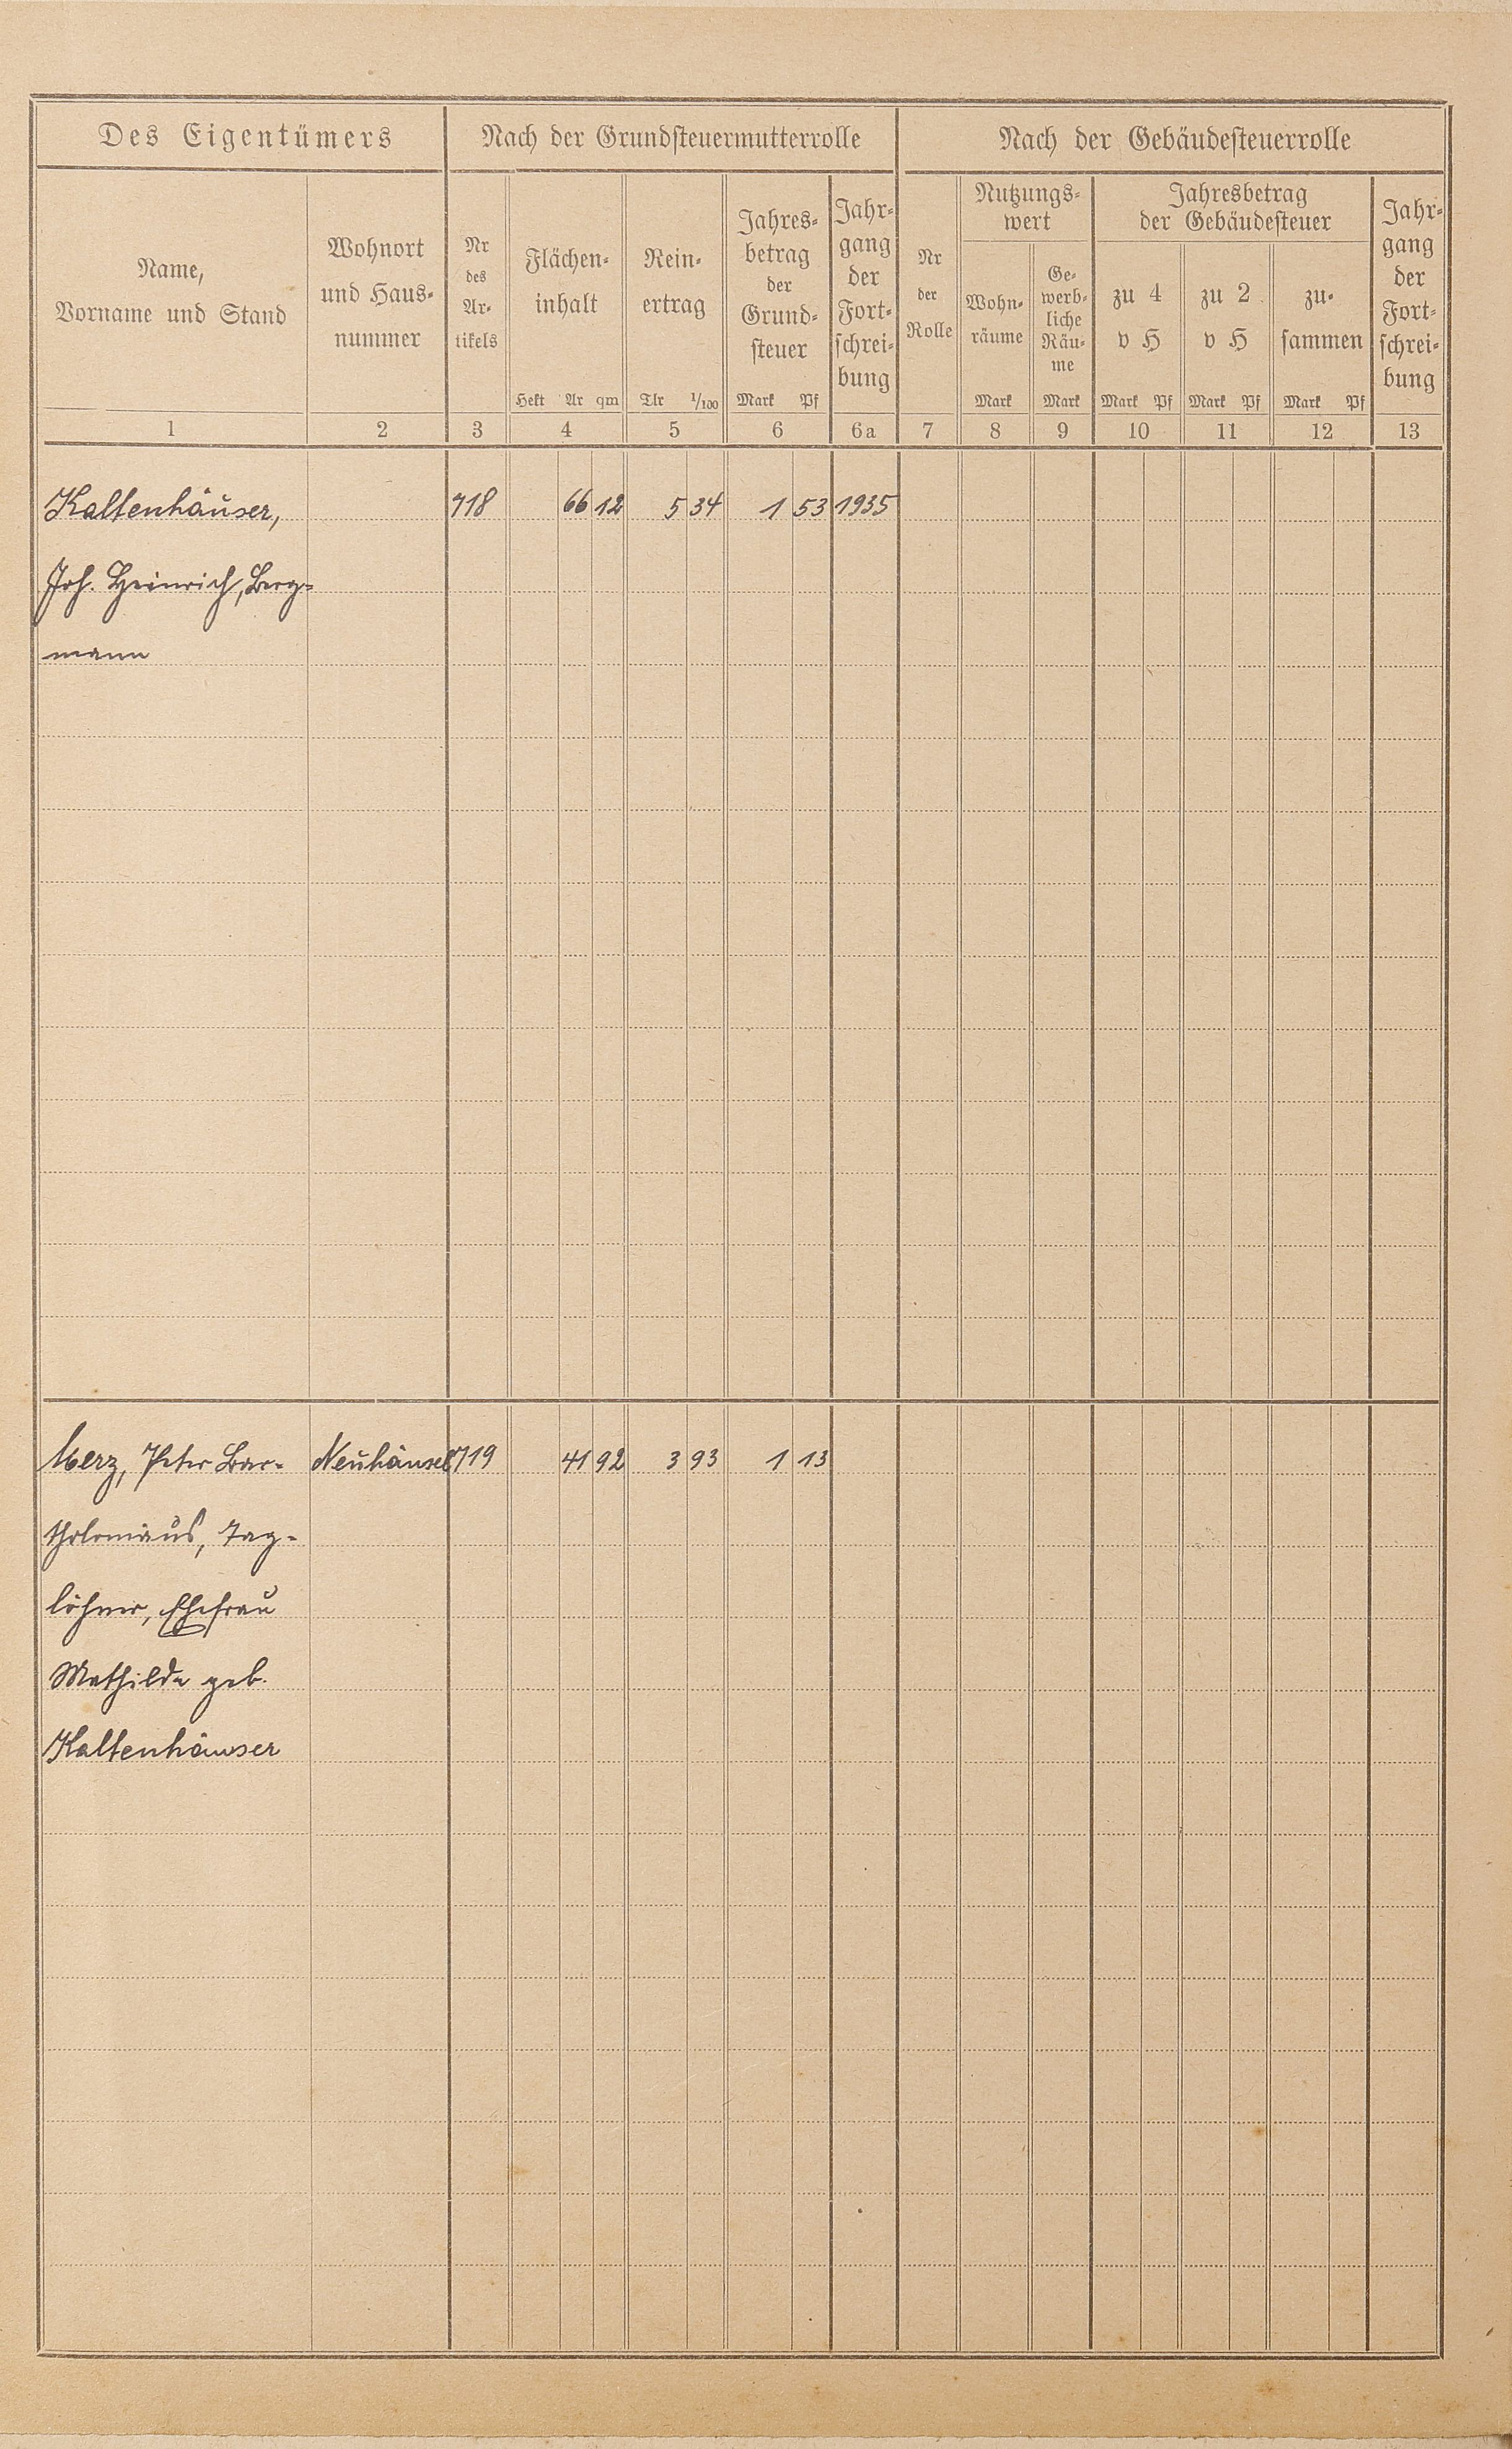 Des Eigentümers
Nach der Grundsteuermutterrolle
Nach der Gebäudesteuerrolle
Name,
Vorname und Stand
Wohnort
und Haus-
nummer
Nr
des
Ar-
tikels
Flächen-
inhalt
Hekt Ar qm
Rein-
ertrag
Tlr 1/100
Jahres-
betrag
der
Grund-
steuer
Mark Pf
Jahr-
gang
der
Fort-
schrei-
bung
Nr
der
Rolle
Nutzungs-
wert
Wohn-
räume
Mark
Ge-
werb-
liche
Räu-
me
Mark
Jahresbetrag
der Gebäudesteuer
zu 4
v H
Mark Pf
zu 2
v H
Mark Pf
zu-
sammen
Mark Pf
Jahr-
gang
der
Fort-
schrei-
bung
1 2 3 4 5 6 6a 7 8 9 10 11 12 13
Kaltenhäuser, 718 66 12 5 34 1 53 1935
Joh. Heinrich, Berg-
mann
Merz, Peter Bar- Neuhäusel 719 41 92 3 93 1 13
tholomäus, Tag-
löhner, Ehefrau
Mathilde geb.
Kaltenhäuser